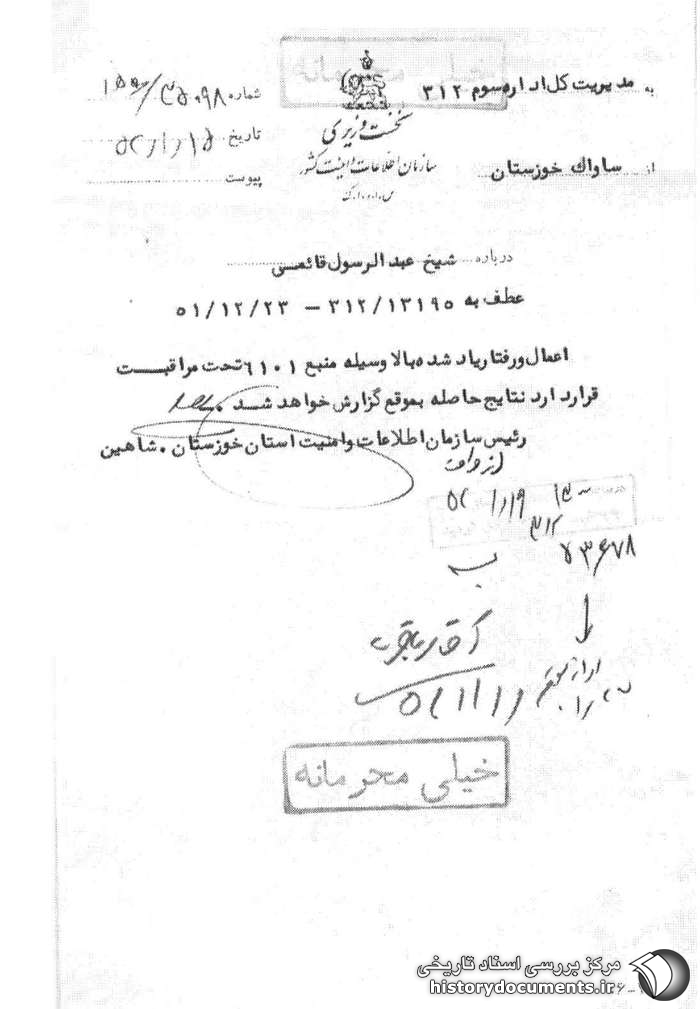 خیلی محرمانه
به مدیریت کل اداره سوم ۳۱۲
شماره
نخست وزیری
تاریخ ۵۲/۱/۱۵
سازمان اطلاعات و امنیت کشور
از ساواك خوزستان
پیوست
س.ا.و.ا.ك
درباره شیخ عبدالرسول قائمی
عطف به ۳۱۲/۱۳۱۹۵ – ۵۱/۱۲/۲۳
اعمال و رفتار یاد شده بالا وسیله منبع ۶۱۰۱ تحت مراقبت
قرار دارد نتایج حاصله بموقع گزارش خواهد شد.
رئیس سازمان اطلاعات و امنیت استان خوزستان . شاهین
۵۲/۱/۱۹
۳۱۲
۷۳۶۷۸
خیلی محرمانه
مرکز بررسی اسناد تاریخی
historydocuments.ir